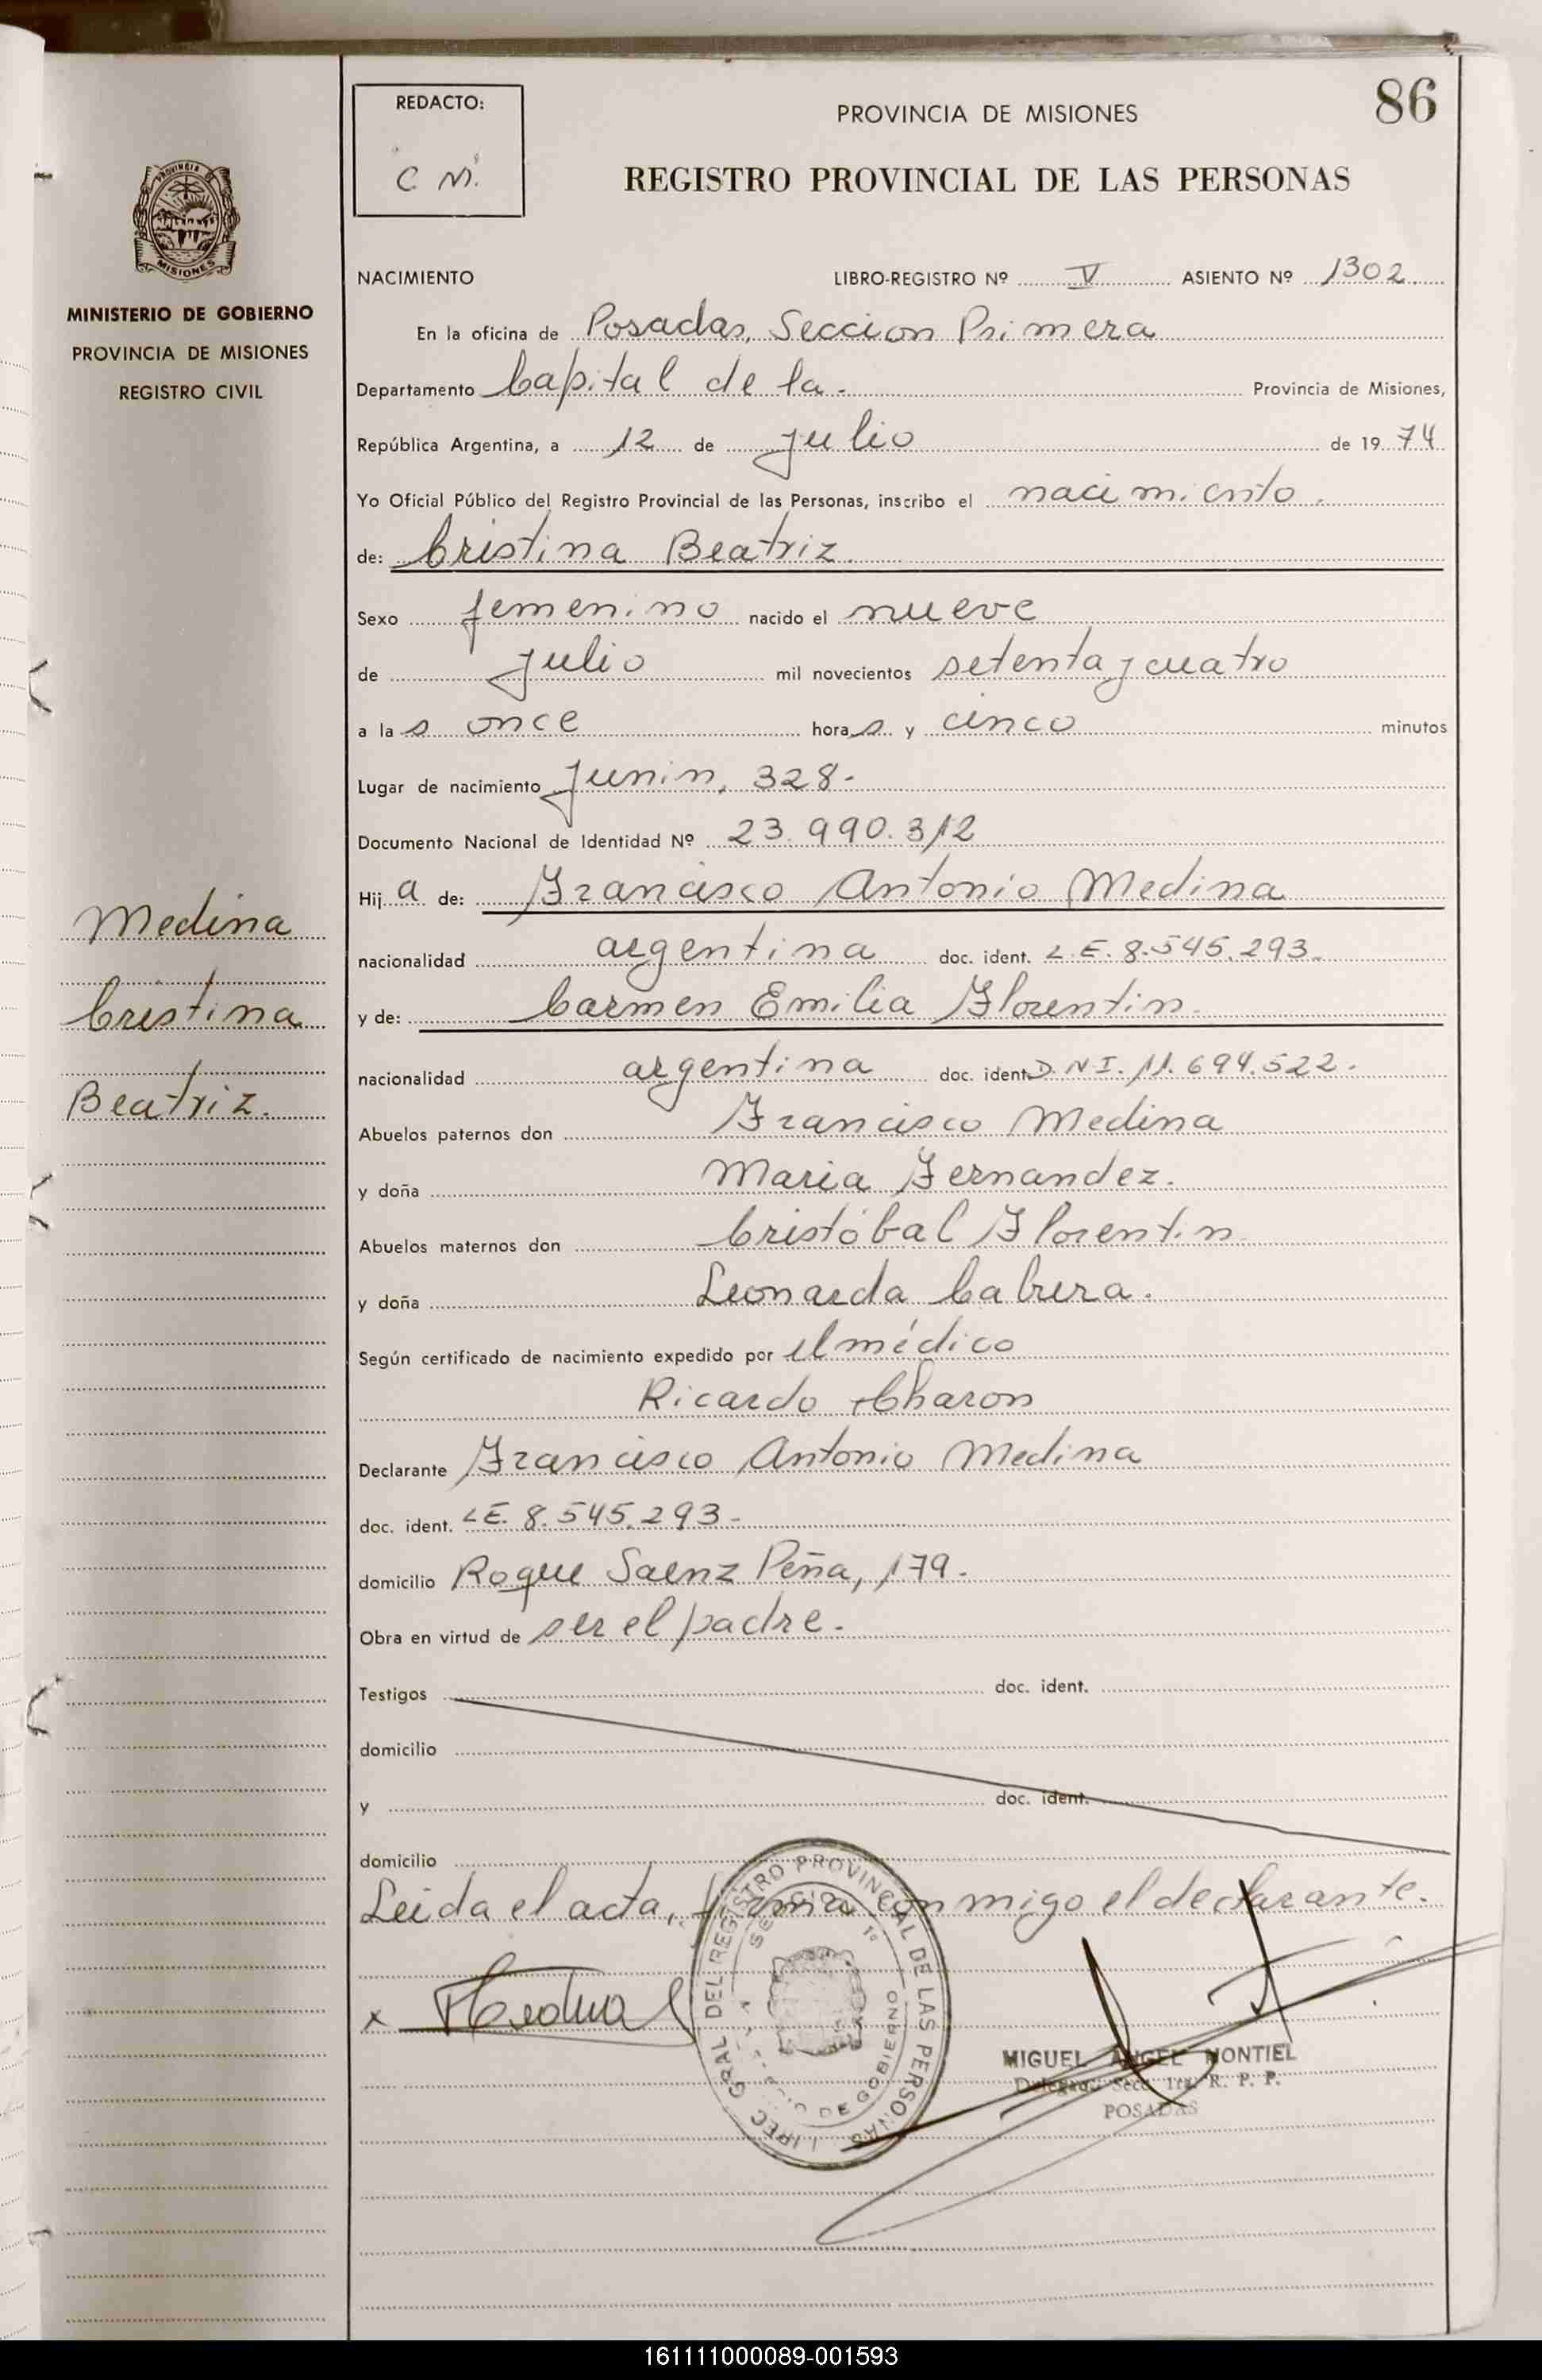 REDACTO:
C. M.
PROVINCIA DE MISIONES
86
REGISTRO PROVINCIAL DE LAS PERSONAS
PROVINCIA DE
MISIONES
MINISTERIO DE GOBIERNO
PROVINCIA DE MISIONES
REGISTRO CIVIL
NACIMIENTO LIBRO-REGISTRO Nº V ASIENTO Nº 1302
En la oficina de Posadas, Seccion Primera
Departamento Capital de la. Provincia de Misiones,
República Argentina, a 12 de Julio de 19 74
Yo Oficial Público del Registro Provincial de las Personas, inscribo el nacimiento.
de: Cristina Beatriz.
Sexo femenino nacido el nueve
de Julio mil novecientos setenta y cuatro
a la s once hora s y cinco minutos
Lugar de nacimiento Junin, 328-
Documento Nacional de Identidad Nº 23.990.312
Hij a de: Francisco Antonio Medina
nacionalidad argentina doc. ident. L.E. 8.545.293.
y de: Carmen Emilia Florentin.
nacionalidad argentina doc. ident. D.N.I. 11.694.522.
Abuelos paternos don Francisco Medina
y doña Maria Fernandez.
Abuelos maternos don Cristóbal Florentin
y doña Leonarda Cabrera.
Según certificado de nacimiento expedido por el médico
Ricardo Charon
Declarante Francisco Antonio Medina
doc. ident. L.E. 8.545.293-
domicilio Roque Saenz Peña, 179-
Obra en virtud de ser el padre-
Testigos doc. ident.
domicilio
y doc. ident.
domicilio
Leida el acta, firma conmigo el declarante.
Medina
Cristina
Beatriz.
x
GRAL DEL REGISTRO PROVINCIAL DE LAS PERSONAS
SECCION 1ª
DE GOBIERNO
MIGUEL ANGEL MONTIEL
Delegado Secc. 1ra. R. P. P.
POSADAS
161111000089-001593